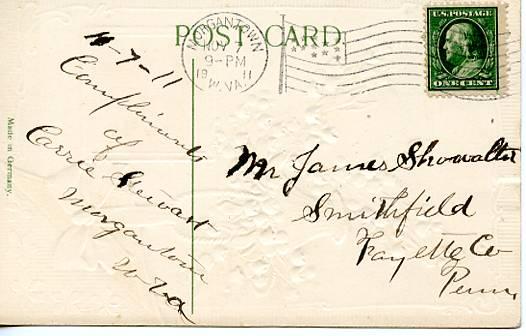 POST CARD
MORGANTOWN
NOV 7
9-PM
1911
W.VA.
U.S. POSTAGE
ONE CENT
11-7-11
Compliments
of
Carrie Stewart
Morgantown
W Va
Mr James Showalter
Smithfield
Fayette Co
Penn.
Made in Germany.